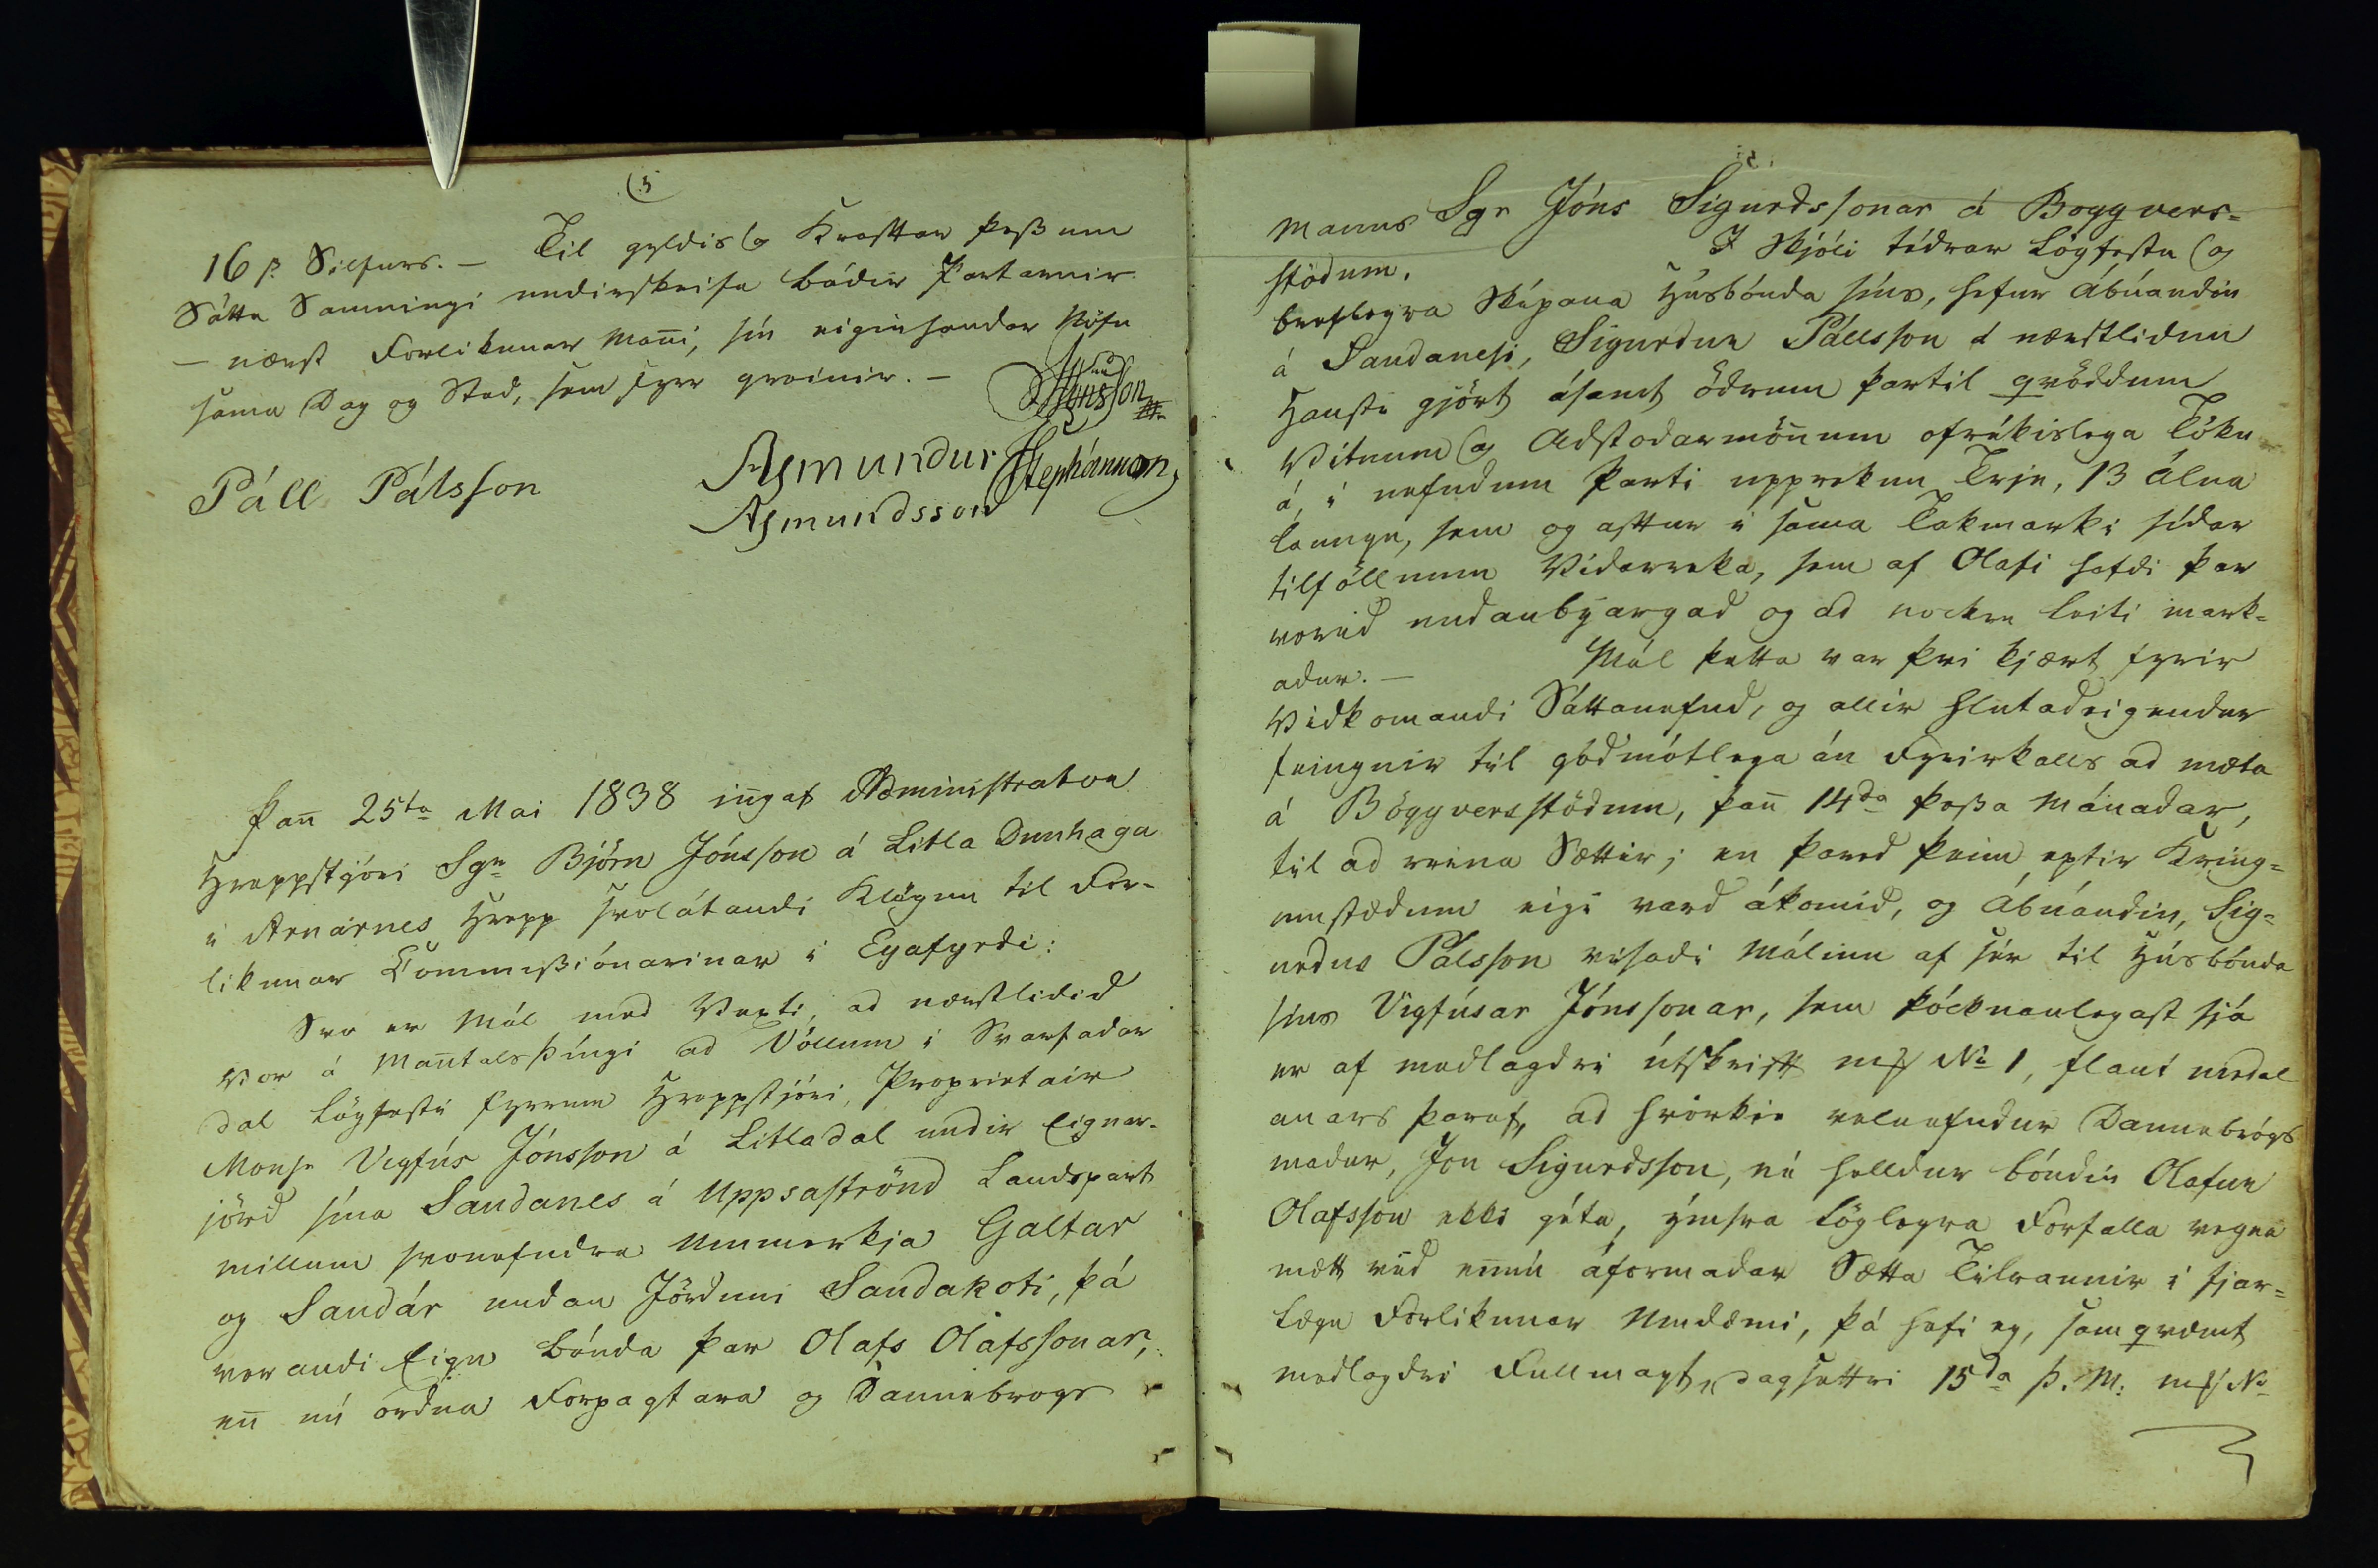 (5
16 ß. Silfurs. — Til gyldis og Krafttar þessum
Sátta Samningi undirskrifa bádir Partarnir
— næst Forliknunar Mañi, sín eiginhandar Nöfn
sama Dag og Stad, sem fyrr greinir. —
Jónsson
Páll Pálsson
Asmundur Stephánnson
Asmundsson
Þañ 25ta Mai 1838 iñgaf Administrator
Hreppstjóri Sgr Björn Jónsson á Litla Dunhaga
i Arnarnes Hrepp svolátandi Klögun til For-
liknunar Commissiónarinar i Eyafyrdi:
Svo er Mál med Vexti, ad næstlidid
Vor á Mañtalsþíngi ad Völlum i Svarfadar
dal lögfesti fyrrum Hreppstjóri, Proprietair
Monsr Vigfús Jónsson á Litladal undir Eignar-
jörd sína Sandanes á Uppsaströnd Landspart
millum svonefndra Ummerkja Galtar
og Sandár undan Jördunni Sandakoti, þá
verandi Eign bónda þar Olafs Olafssonar,
eñ nú ordna Forpagtara og Dannebrogs
manns Sgr Jóns Sigurdssonar á Boggvers-
stödum. I skjóli tédrar lögfestu og
breflegra skipana Húsbónda síns, hefur Abúandin
á Sandanesi, Sigurdur Pállsson á næstlidnu
Hausti gjört ásamt ödrum þartil qvöddum
Vitnum og Adstodarmöñum ofríkislega Töku
á, i nefndum Parti uppreknu Trje, 13 álna
laungu, sem og aftur i sama Takmarki sídar
tilföllnum Vidarreka, sem af Olafi hafdi þar
verid undanbjargad og ad nockru leiti mark-
adur. — Mál þetta var þvi kjært fyrir
Vidkomandi Sáttanefnd, og allir hlutadeigendur
feingnir til gódmótlega án Fyrirkalls ad mæta
á Böggversstödum, þañ 14da þessa Mánadar,
til ad reina Sættir; en þared þeim eptir Kring-
umstædum eigi vard ákomid, og Abúandin, Sig-
urdur Pálsson vísadi Málinu af sér til Húsbónda
síns Vigfúsar Jónssonar, sem þócknanlegast sjá
er af medlagdri útskrift No 1, flaut medal
anars þaraf, ad hvörkie velnefndur Dannebrógs
madur, Jon Sigurdsson, né helldur bóndin Olafur
Olafsson ekki géta, ýmsra löglegra Forfalla vegna
mætt vid eññú áformadar Sætta Tilraunir i fjar-
lægu Forliknunar Umdæmi, þá hefi eg, samqvæmt
medlagdri Fullmagt, dagsettri 15da þ. M: No